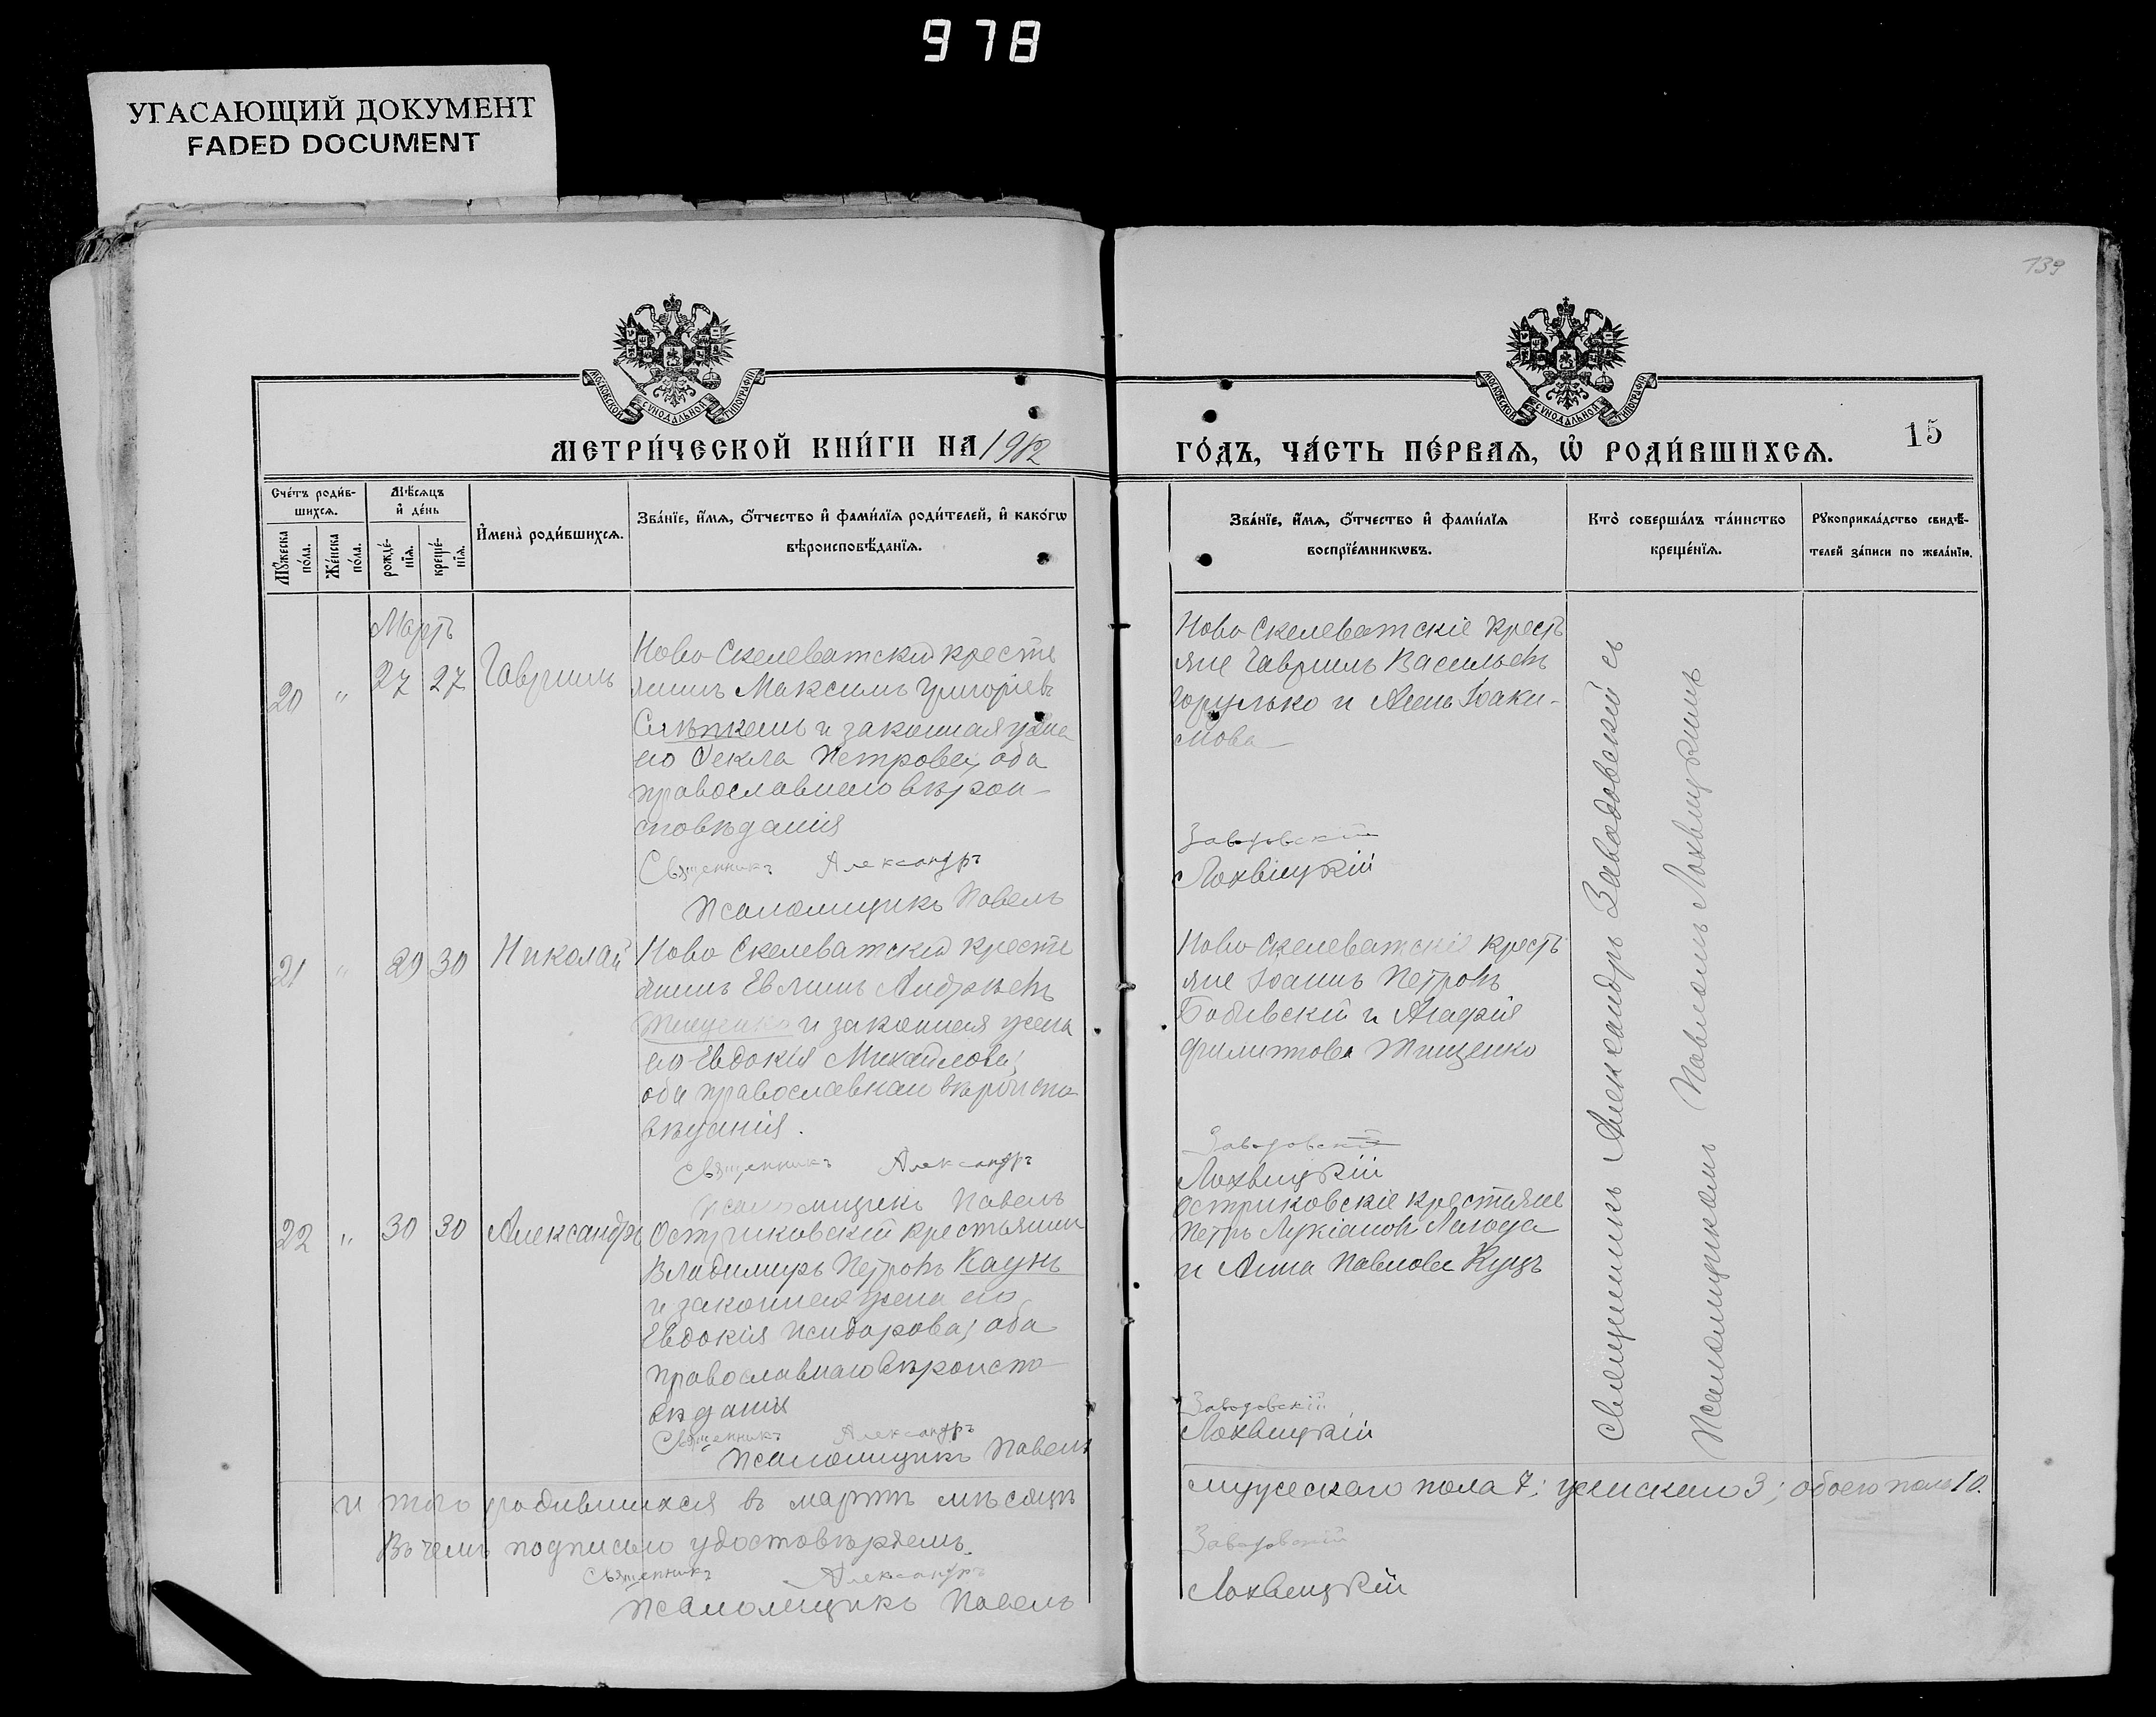 978
УГАСАЮЩИЙ ДОКУМЕНТ
FADED DOCUMENT
139
МОСКОВСКОЙ СѴНОДАЛЬНОЙ ТИПОГРАФІИ
МОСКОВСКОЙ СѴНОДАЛЬНОЙ ТИПОГРАФІИ
МЕТРИ́ЧЕСКОЙ КНИ́ГИ НА 1912
ГО́ДЪ, ЧА́СТЬ ПЕ́РВАѦ, Ѽ РОДИ́ВШИХСѦ.
15
Сче́тъ роди́в-
шихсѧ.
Мꙋ́жеска
по́ла.
Же́нска
по́ла.
Мѣ́сѧцъ
и҆ де́нь
рожде́-
нїѧ.
креще́-
нїѧ.
И҆мена̀ роди́вшихсѧ.
Зва́нїе, и҆́мѧ, ѻ҆́тчество и҆ фами́лїѧ роди́телей, и҆ како́гѡ
вѣроисповѣ́данїѧ.
Зва́нїе, и҆́мѧ, ѻ҆́тчество и҆ фами́лїѧ
воспрїе́мникѡвъ.
Кто̀ соверша́лъ та́инство
креще́нїѧ.
Рꙋкоприкла́дство свидѣ́-
телей за́писи по жела́нїю.
Мартъ
20 " 27 27 Гавриилъ
Ново Скелеватскій кресть
янинъ Максимъ Григоріевъ
и законная жена
его Ѳекла Петрова, оба
православнаго вѣрои-
сповѣданія
Священникъ Александръ
Псаломщикъ Павелъ
Ново Скелеватскіе кресть
яне Гавріилъ Васильевъ
и Іаки-
мова
Заводовскій
Лохвицкій
21 " 29 30 Николай
Ново Скелеватскій кресть
янинъ Андреевъ
Тищенко и законная жена
его Евдокія Михайлова,
оба православнаго вѣроиспо
вѣданія.
Священникъ Александръ
Псаломщикъ Павелъ
Ново Скелеватскіе кресть
яне Іоаннъ Петровъ
и Агафія
Филиппова Тищенко
Заводовскій
Лохвицкій
22 " 30 30 Александръ
Остриковскій крестьянинъ
Владимиръ Петровъ Каунъ
и законная жена его
Евдокія Исидорова, оба
православнаго вѣроиспо
вѣданія
Священникъ Александръ
Псаломщикъ Павелъ
Остриковскіе крестьяне
Петръ Лукіановъ
и Анна Павлова Куцъ
Заводовскій
Лохвицкій
Священникъ Александръ Заводовскій съ
Псаломщикомъ Павломъ Лохвицкимъ
и того родившихся въ мартѣ мѣсяцѣ
мужескаго пола 7; женскаго 3; обоего пола 10.
Въ чемъ подписью удостовѣряемъ.
Священникъ Александръ
Заводовскій
Псаломщикъ Павелъ
Лохвицкій